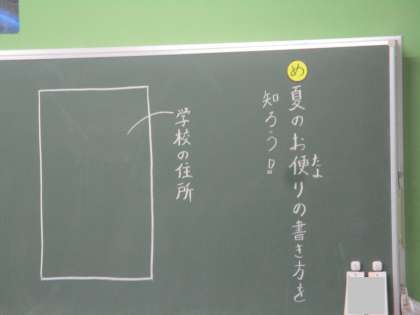 め
夏のお便りの書き方を
たよ
知ろう!!
学校の住所